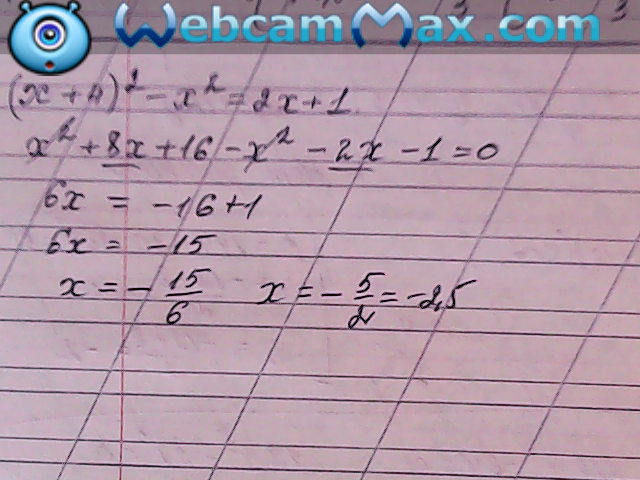 WebcamMax.com
(x+4)² - x² = 2x+1
x² + 8x + 16 - x² - 2x - 1 = 0
6x = -16+1
6x = -15
x = - 15/6    x = - 5/2 = -2,5